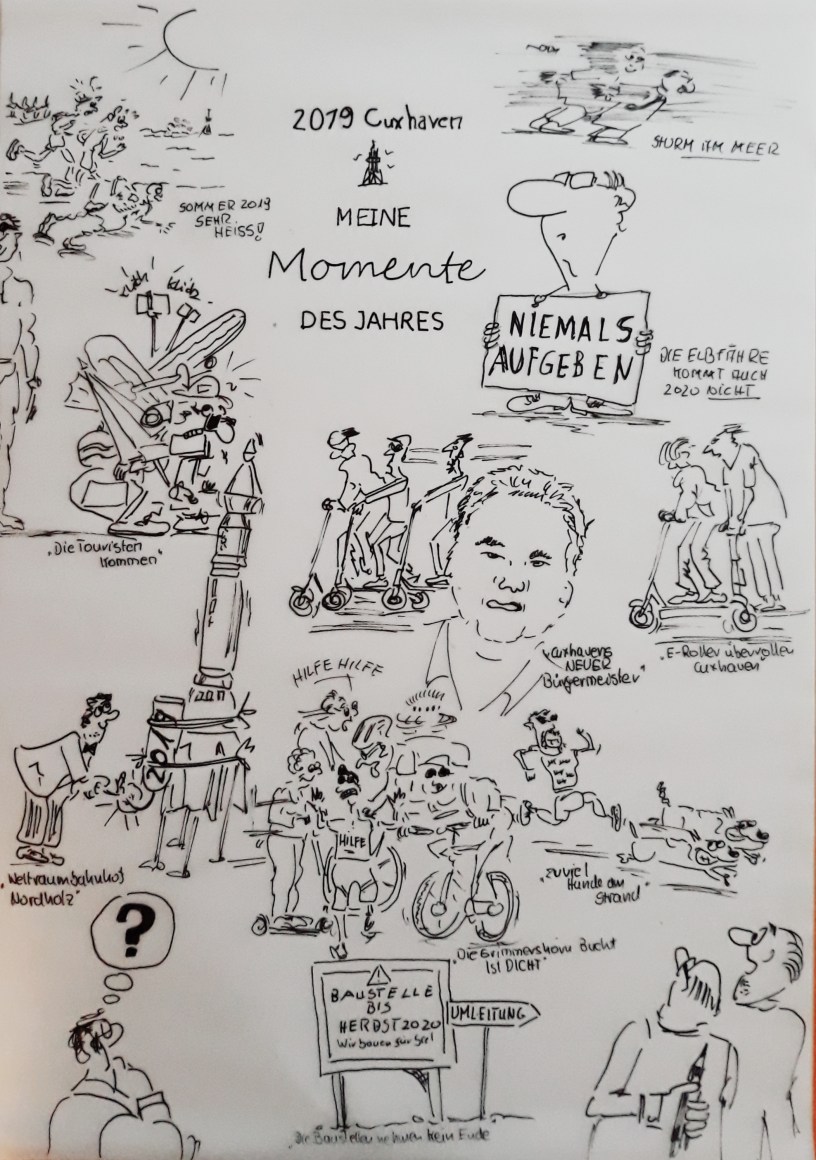 2019 Cuxhaven
MEINE
Momente
DES JAHRES
STURM IM MEER
SOMMER 2019
SEHR
HEISS!
klick
NIEMALS
AUFGEBEN
DIE ELBFÄHRE
KOMMT AUCH
2020 NICHT
„Die Touristen
kommen“
„Cuxhavens
NEUER
Bürgermeister“
„E-Roller übervolles
Cuxhaven“
HILFE HILFE
2019
HILFE
„Weltraumbahnhof
Nordholz“
„zuviel
Hunde am
Strand“
„Die Grimmershörn Bucht
ist DICHT“
?
BAUSTELLE
BIS
HERBST 2020
Wir bauen für Sie!
UMLEITUNG
„Die Baustellen nehmen kein Ende